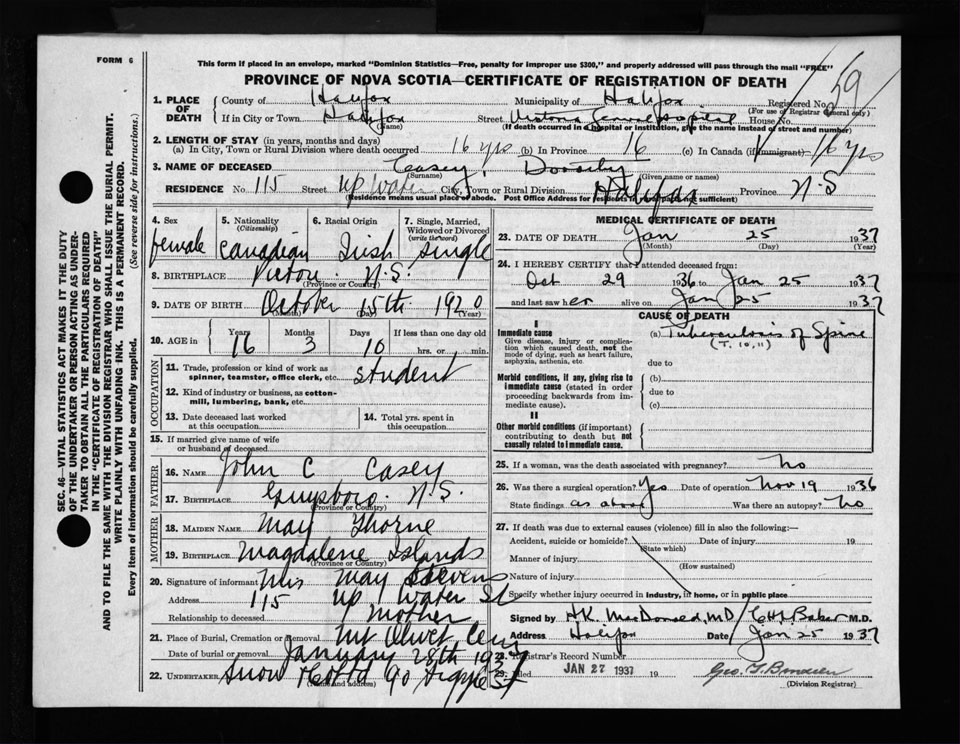 FORM 6
This form if placed in an envelope, marked "Dominion Statistics—Free, penalty for improper use $300," and properly addressed will pass through the mail "FREE"
PROVINCE OF NOVA SCOTIA—CERTIFICATE OF REGISTRATION OF DEATH
59
1. PLACE OF DEATH
County of Halifax Municipality of Halifax Registered No.
(For use of Registrar General only)
If in City or Town Halifax Street Victoria General Hospital House No.
(Name) (If death occurred in a hospital or institution, give the name instead of street and number)
2. LENGTH OF STAY (in years, months and days)
(a) In City, Town or Rural Division where death occurred 16 yrs (b) In Province 16 (c) In Canada (if immigrant) 16 yrs
3. NAME OF DECEASED Casey, Dorothy
(Surname) (Given name or names)
RESIDENCE No. 115 Street Up Water City, Town or Rural Division Halifax Province N-S
(Residence means usual place of abode. Post Office Address for residents in rural parts not sufficient)
4. Sex female
5. Nationality (Citizenship) Canadian
6. Racial Origin Irish
7. Single, Married, Widowed or Divorced (write the word) single
8. BIRTHPLACE Pictou. N.S.
(Province or Country)
9. DATE OF BIRTH October 15th 1920
(Month) (Day) (Year)
10. AGE in Years 16 Months 3 Days 10 If less than one day old hrs. or min.
OCCUPATION
11. Trade, profession or kind of work as spinner, teamster, office clerk, etc. student
12. Kind of industry or business, as cotton-mill, lumbering, bank, etc.
13. Date deceased last worked at this occupation
14. Total yrs. spent in this occupation
15. If married give name of wife or husband of deceased
FATHER
16. NAME John C Casey
17. BIRTHPLACE Guysboro. N.S.
(Province or Country)
MOTHER
18. MAIDEN NAME May Thorne
19. BIRTHPLACE Magdalene Islands
(Province or Country)
20. Signature of informant Mrs May Stevens
Address 115 Up Water St
Relationship to deceased Mother
21. Place of Burial, Cremation or Removal Mt Olivet Cemy
Date of burial or removal January 28th 1937
22. UNDERTAKER Snow & Co Ltd 90 Argyle St
(Name and address)
MEDICAL CERTIFICATE OF DEATH
23. DATE OF DEATH Jan 25 1937
(Month) (Day) (Year)
24. I HEREBY CERTIFY that I attended deceased from:
Oct 29 1936 to Jan 25 1937
and last saw her alive on Jan 25 1937
CAUSE OF DEATH
I
Immediate cause
Give disease, injury or complication which caused death, not the mode of dying, such as heart failure, asphyxia, asthenia, etc.
(a) Tuberculosis of Spine
(T. 10, 11)
due to
Morbid conditions, if any, giving rise to immediate cause (stated in order proceeding backwards from immediate cause).
(b)
due to
(c)
II
Other morbid conditions (if important) contributing to death but not causally related to immediate cause.
25. If a woman, was the death associated with pregnancy? no
26. Was there a surgical operation? Yes Date of operation Nov 19 1936
State findings as above Was there an autopsy? no
27. If death was due to external causes (violence) fill in also the following:—
Accident, suicide or homicide? Date of injury 19
(State which)
Manner of injury
(How sustained)
Nature of injury
Specify whether injury occurred in industry, in home, or in public place
Signed by H.K. MacDonald, MD / C H L Baker M.D.
Address Halifax Date Jan 25 1937
28. Registrar's Record Number
29. Filed JAN 27 1937 19
(Division Registrar)
SEC. 46—VITAL STATISTICS ACT MAKES IT THE DUTY OF THE UNDERTAKER OR PERSON ACTING AS UNDERTAKER TO OBTAIN ALL THE PARTICULARS REQUIRED IN THE "CERTIFICATE OF REGISTRATION OF DEATH" AND TO FILE THE SAME WITH THE DIVISION REGISTRAR WHO SHALL ISSUE THE BURIAL PERMIT.
WRITE PLAINLY WITH UNFADING INK. THIS IS A PERMANENT RECORD.
Every item of information should be carefully supplied. (See reverse side for instructions.)